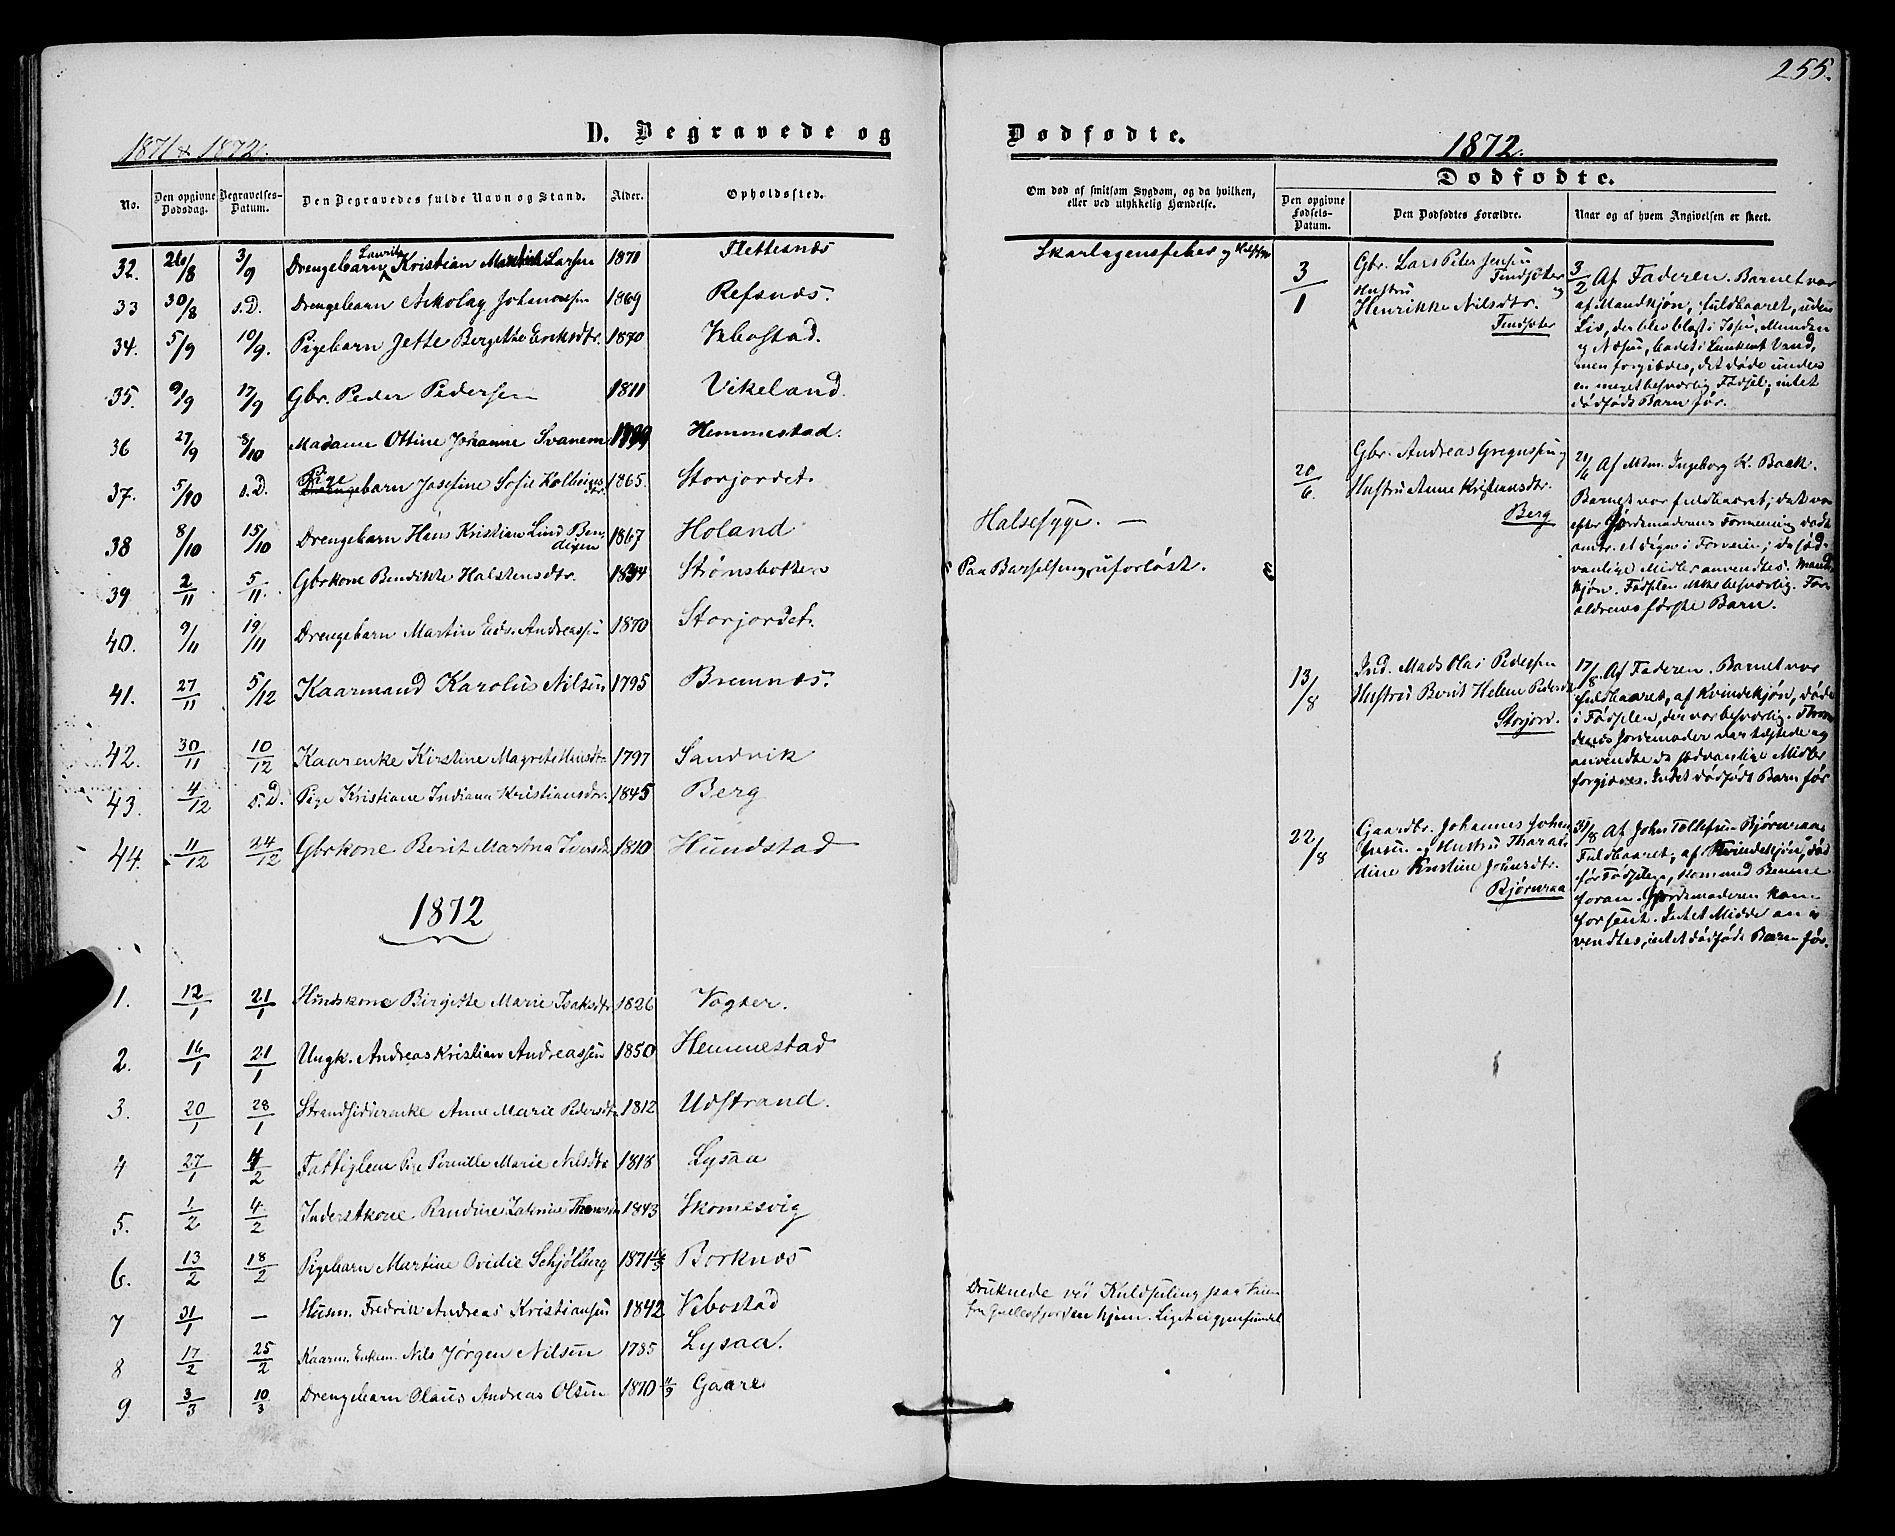 255.
1871 & 1872.
D. Begravede og
Dødfødte.
1872.
No.
Den opgivne Dødsdag.
Begravelses-Datum.
Den Begravedes fulde Navn og Stand.
Alder.
Opholdssted.
Om død af smitsom Sygdom, og da hvilken, eller ved ulykkelig Hændelse.
Dødfødte.
Den opgivne Fødsels-Datum.
Den Dødfødtes Forældre.
Naar og af hvem Angivelsen er skeet.
32. 26/8 3/9 Drengebarn Laurits Kristian Larsen 1871 Flettesnæs Skarlagensfeber og
33 30/8 s.D. Drengebarn Nikolay Johannessen 1869 Refsnæs.
34. 5/9 10/9. Pigebarn Jette Bergitte Eriksdtr. 1870 Vebostad.
35. 9/9 17/9 Gbr. Peder Pedersen 1811 Vikeland.
36 27/9 8/10 Madame Ottine Johanne Svanem 1799 Hemmestad.
37. 5/10 s.D. Pigebarn Josefine Sofie 1865. Storjordet.
38 8/10 15/10 Drengebarn Hans Kristian Lind Bendixen 1867 Holand Halsesyge. —
39 2/11 5/11 Gbrkone Bendikte Halstensdtr. 1834 Strømsbotten Paa Barselseng, uforløst.
40. 9/11 19/11 Drengebarn Martin Edv. Andreassen 1870 Storjordet.
41. 27/11 5/12 Kaarmand Karolus Nilsen 1795 Bremnæs.
42. 30/11 10/12 Kaarenke Kirstine Magrete Hansdtr 1797 Sandvik
43. 4/12 s.D. Pige Kristiane Indiana Kristiansdtr. 1845 Berg
44. 11/12 24/12 Gbrkone Berit Martha Iversdtr 1810 Hundstad
1872
1. 12/1 21/1 Husmkone Birgitte Marie Isaksdtr 1826 Vogter.
2. 16/1 21/1 Ungk. Andreas Kristian Andreassen 1850 Hemmestad
3. 20/1 28/1 Strandsidderenke Anne Marie Pedersdtr 1812 Udstrand.
4 27/1 4/2 Fattiglem Pige Pernille Marie Nilsdtr 1818 Lysaa
5. 1/2 4/2 Inderstkone Randine Katrine 1843 Skomesvig
6. 13/2 18/2 Pigebarn Martine Ovidie Schjølberg 1871 Borknæs
7 31/1 — Husm. Fredrik Andreas Kristiansen 1842 Vebostad Druknede ved Kuldseiling paa Veien
fra Gullesfjorden hjem. Liget ei gjenfundet
8 17/2 25/2 Kaarm. Enkem. Nils Jørgen Nilsen 1785 Lysaa.
9 3/3 10/3 Drengebarn Olaus Andreas Olsen 1870 11/9 Gaare
3/1
Gbr. Lars Peter Jensen
Tendsæter
Hustru og
Henrikke Nilsdtr.
Tendsæter
3/2 Af Faderen. Barnet var
af Mandkjøn, fuldbaaret, uden
Liv, der blev blæst i Munden
og Næsen, badet i lunkent Vand,
men forgjæves, det døde under
en meget besværlig Fødsel; intet
dødfødt Barn før.
20/6
Gbr. Andreas Gregussen og
Hustru Anne Kristiansdtr.
Berg
21/6 Af Mdm. Ingeborg K. Baak.
Barnet var fuldbaaret; det var
efter Jordemoderens Formening dødt
omtr. et Døgn i Forveien; de sæd-
vanlige Midler anvendtes. Mand-
kjøn. Fødslen ikke besværlig. For-
ældrenes første Barn.
13/8
Ind. Mads Olai Pedersen
Hustru Berit Helene Pedersdtr
Storjord.
17/8. Af Faderen. Barnet var
fuldbaaret, af Kvindekjøn, døde
i Fødslen, der var besværlig.
Jordemoder var tilstede og
anvendte de sædvanlige Midler
forgjæves. Intet dødfødt Barn før
22/8
Gaardbr. Johannes Johan-
nesen og Hustru Tharal-
dine Kristine Johnsdtr.
Bjørnraa
25/8 Af John Tollefsen Bjørnraa.
Fuldbaaret, af Kvindekjøn, død
før Fødslen, kom med Benene
foran. Jordemoderen kom
for sent. Intet Middel an-
vendtes, intet dødfødt Barn før.